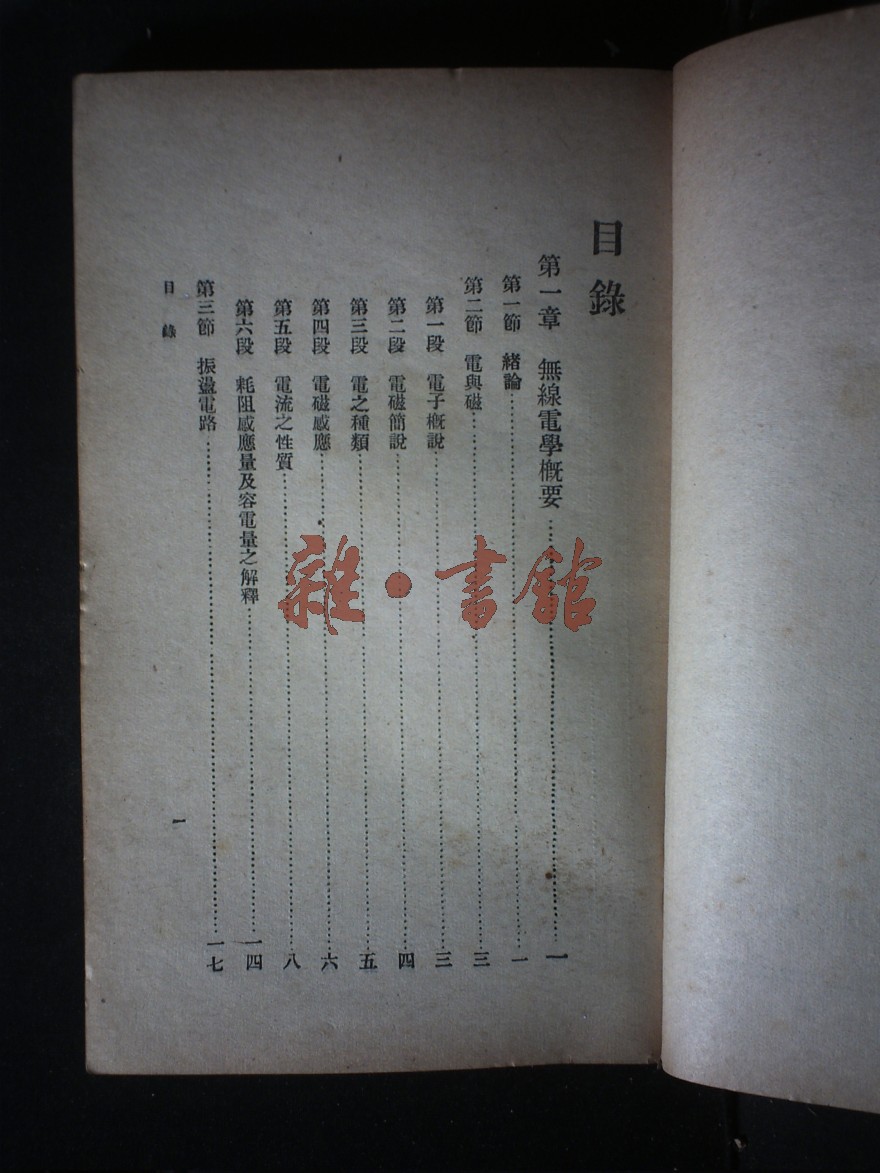 目錄
第一章 無線電學概要……一
第一節 緒論……一
第二節 電與磁……三
第一段 電子概說……三
第二段 電磁簡說……四
第三段 電之種類……五
第四段 電磁感應……六
第五段 電流之性質……八
第六段 耗阻感應量及容電量之解釋……一四
第三節 振盪電路……一七
目錄
一
雜·書館